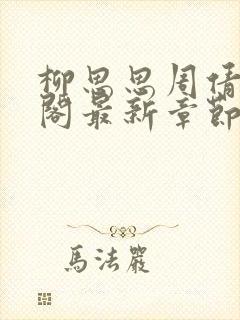 柳思思周倩
閣最新章節
馬法嚴